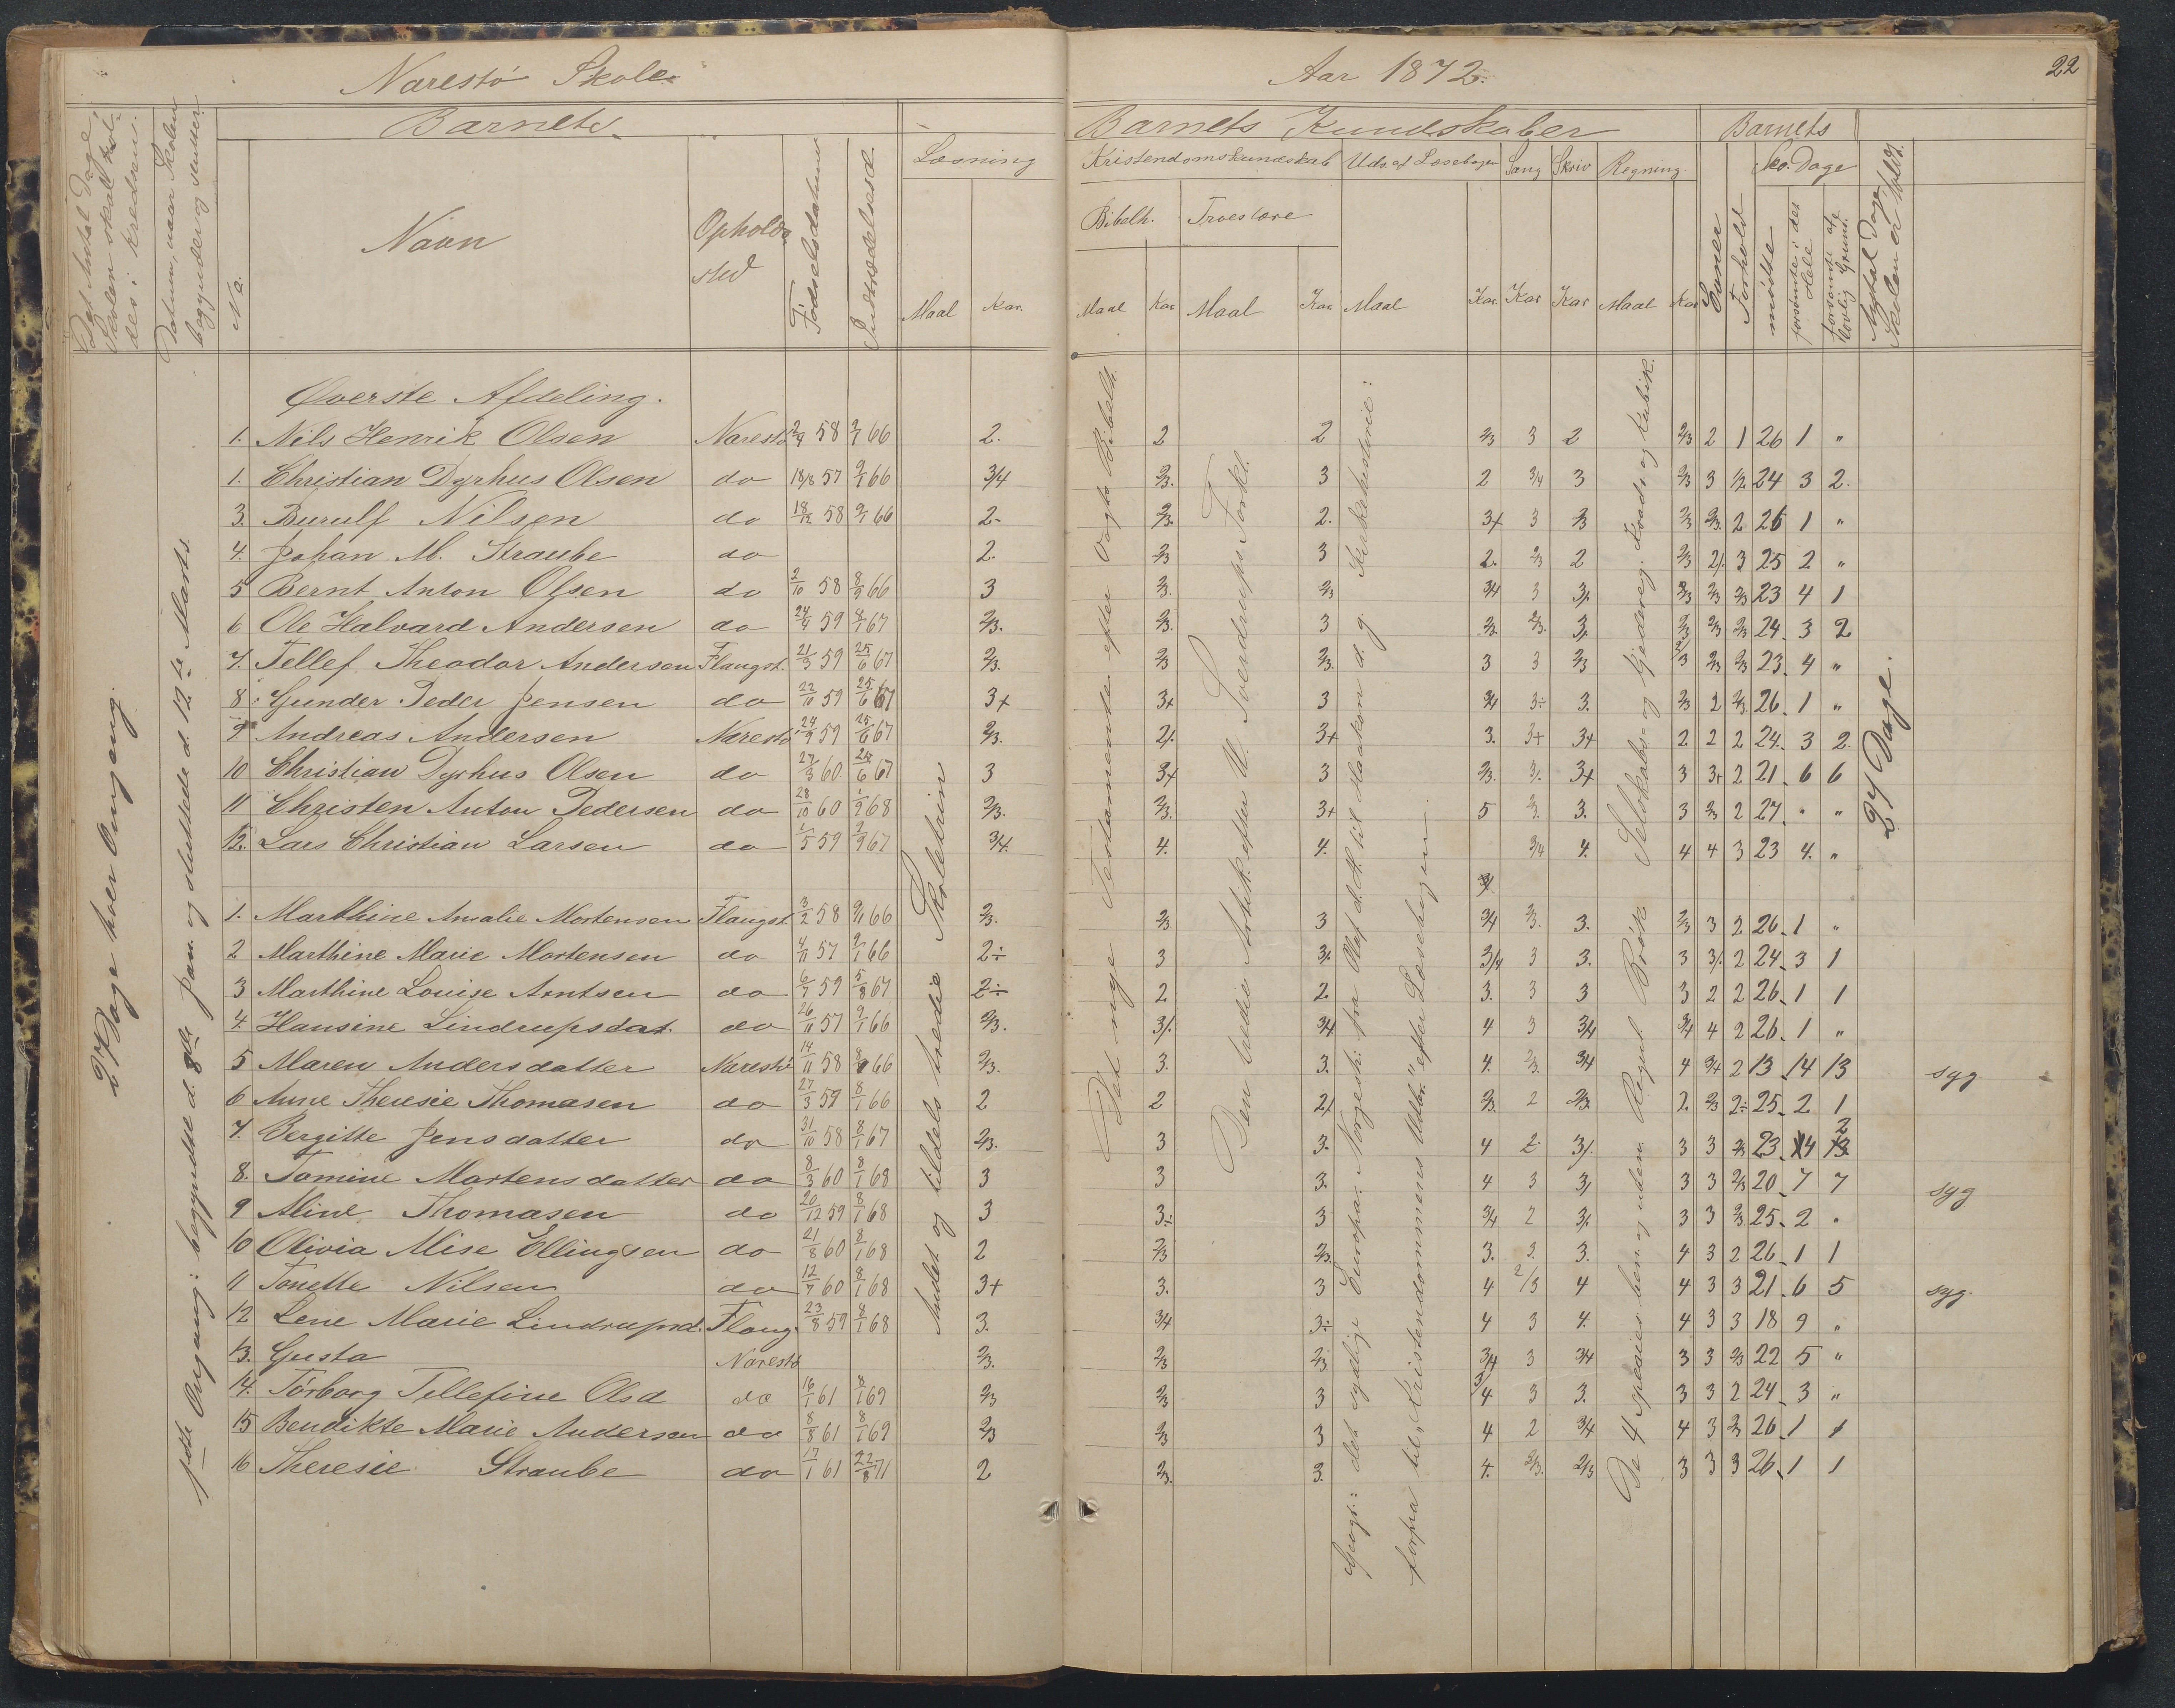 Narestö Skole
Aar 1872.
22
Det Antal Dage
Skolen skal hol-
des i kredsen.
Datum, naar Skolen
begynder og ender.
Barnets
No.
Navn
Opholds
sted
Fødselsdatum
Indtrædelsesd.
Læsning
Maal
Kar.
Barnets Kundskaber
Kristendomskundskab
Uds. af Læsebogen
Sang
Skriv
Regning
Bibelh.
Troeslære
Maal
Kar
Maal
Kar.
Maal
Kar.
Kar
Kar
Maal
Kar
Barnets
Evner
Forhold
Sko. Dage
mødte
forsømte i det Hele
forsømte af lovlig Grund.
Antal Dage
Skolen er holdt.
27 Dage hver Omgang.
1ste Omgang: begyndte d. 8de Jan. og sluttede d. 12te Marts.
Andet og tildels tredie Skoletrin
Det nye Testamente efter Vogts Bibelh.
Den tredie Artik. efter U. Sverdrups Forkl.
Geogr.: det sydlige Europa. Norgesh: fra Olaf d. H. til Haakon d. g. Kirkehistorie:
forfra til "Kristendommens Udbr." efter Læsebogen
De 4 species hen. og uden Regul. Brøk. Selskabs- og Kjedereg. Kvadr. og Kubik.
27 Dage.
Øverste Afdeling.
1. Nils Henrik Olsen Narestö 2/4 58 9/1 66 2. 2 2 2/3 3 2 2/3 2 1 26 1 "
1. Christian Dyrhus Olsen do 18/8 57 9/1 66 3/4 2/3. 3 2 3/4 3 2/3 3 1/2 24 3 2.
3. Burulf Nilsen do 18/12 58 9/1 66 2. 2/3. 2. 3+ 3 2/3 2/3 2/3. 2 26 1 "
4. Johan M. Straube do 2. 2/3 3 2. 2/3 2 2/3 2/. 3 25 2 "
5 Bernt Anton Olsen do 2/10 58 8/9 66 3 2/3. 2/3 3/4 3 3/. 2/3 2/3 2/3 23 4 1
6 Ole Halvard Andersen do 24/9 59 8/1 67 2/3. 2/3. 3 2/3. 2/3. 3/. 2/3 2/3 2/3 24 3 2
7. Tellef Theodor Andersen Flangst. 21/3 59 25/6 67 2/3. 2/3 2/3. 3 3 2/3 2/3 2/3 2/3 23. 4 "
8. Gunder Peder Jensen do 22/10 59 25/6 67 3+ 3+ 3 3/4 3÷ 3. 2/3 2 2/3 26. 1 "
9. Andreas Andersen Narestö 24/9 59 25/6 67 2/3. 2/. 3+ 3. 3+ 3+ 2 2 2 24. 3 2.
10 Christian Dyrhus Olsen do 27/3 60 25/6 67 3 3+ 3 2/3. 3/. 3+ 3 3+ 2 21. 6 6
11 Christen Anton Pedersen do 28/10 60 1/9 68 2/3. 2/3. 3+ 5 2/3. 3. 3 2/3 2 27. " "
12. Lars Christian Larsen do 1/5 59 2/9 67 3/4. 4. 4. 3/4 4. 4 4 3 23 4. "
1. Marthine Amalie Mortensen Flangst. 3/2 58 9/1 66 2/3. 2/3 3 3/4 2/3. 3. 2/3 3 2 26. 1 "
2 Marthine Marie Mortensen do 4/11 57 9/1 66 2÷ 3 3/. 3/4 3 3. 3 3/. 2 24. 3 1
3 Marthine Louise Arntsen do 6/7 59 5/8 67 2÷ 2 2. 3. 3 3 3 2 2 26. 1 1
4. Hansine Lindrupsdat. do 26/11 57 9/1 66 2/3. 3/. 3/4 4 3 3/4 3/4 4 2 26. 1 "
5 Maren Andersdatter Narestö 14/11 58 8/1 66 2/3. 3. 3. 4. 2/3. 3/4 4 3/4 2 13. 14 13 syg.
6 Anne Theresie Thomasen do 27/3 59 8/1 66 2 2 2/. 2/3. 2 2/3. 2. 2/3 2÷ 25. 2 1
7. Bergitte Jensdatter do 31/10 58 8/1 67 2/3. 3 3. 4 2. 3/. 3 3 2/3 23. 4 2
8. Tomine Martensdatter do 8/3 60 8/1 68 3 3 3. 4 3 3/. 3 3 2/3 20. 7 7 syg
9 Aline Thomasen do 20/12 59 8/1 68 3 3÷ 3 3/4 2 3/. 3 3 2/3 25. 2 "
10 Olivia Alise Ellingsen do 21/8 60 8/1 68 2 2/3 2/3. 3. 2. 3. 4 3 2 26. 1 1
11 Tonette Nilsen do 12/7 60 8/1 68 3+ 3. 3 4 2/3 4 4 3 3 21. 6 5 syg.
12 Lene Marie Lindrupsd. Flang. 23/8 59 8/1 68 3. 3/4 3÷ 4 3 4. 4 3 3 18 9 "
13. Gusta Narestö 2/3. 2/3 2/3 3/4 3 3/4 3 3 2/3 22 5 "
14. Torborg Tellefine Olsd do 16/1 61 8/1 69 2/3 2/3 3 3/4 3 3. 3 3 2 24. 3 "
15 Bendikte Marie Andersen do 8/8 61 8/1 69 2/3 2/3 3 4 2 3/4 4 3 2/3 26. 1 1
16 Theresie Straube do 17/1 61 22/8 71 2 2/3. 3. 4. 2/3. 2/3 3 3 3 26. 1 1